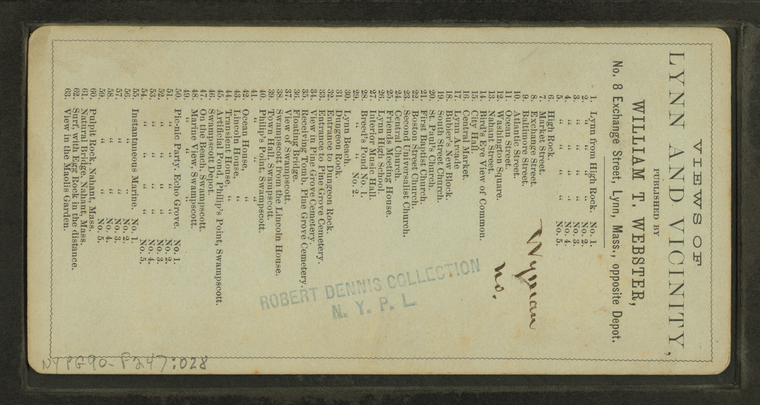 VIEWS OF
LYNN AND VICINITY,
PUBLISHED BY
WILLIAM T. WEBSTER,
No. 8 Exchange Street, Lynn, Mass., opposite Depot.
1. Lynn from High Rock. No. 1.
2. " " " No. 2.
3. " " " No. 3.
4. " " " No. 4.
5. " " " No. 5.
6. High Rock.
7. Market Street.
8. Exchange Street.
9. Baltimore Street.
10. Atlantic Street.
11. Ocean Street.
12. Washington Square.
13. Nahant Street.
14. Bird's Eye View of Common.
15. City Hall.
16. Central Market.
17. Lynn Arcade.
18. Bubier's New Block.
19. South Street Church.
20. St. Paul's Church.
21. First Baptist Church.
22. Boston Street Church.
23. Second Universalist Church.
24. Central Church.
25. Friends Meeting House.
26. Lynn High School.
27. Interior Music Hall.
28. Breed's Pond. No. 1.
29. " " No. 2.
30. Lynn Beach.
31. Dungeon Rock.
32. Entrance to Dungeon Rock.
33. Entrance to Pine Grove Cemetery.
34. View in Pine Grove Cemetery.
35. Receiving Tomb, Pine Grove Cemetery.
36. Floating Bridge.
37. View of Swampscott.
38. Swampscott from the Lincoln House.
39. Town Hall, Swampscott.
40. Philip's Point, Swampscott.
41. " " "
42. Ocean House, "
43. Lincoln House, "
44. Transient House, "
45. Artificial Pond, Philip's Point, Swampscott.
46. Swampscott Depot.
47. On the Beach, Swampscott.
48. Marine View, Swampscott.
49. " " "
50. Picnic Party, Echo Grove. No. 1.
51. " " " No. 2.
52. " " " No. 3.
53. " " " No. 4.
54. " " " No. 5.
55. Instantaneous Marine. No. 1.
56. " " No. 2.
57. " " No. 3.
58. " " No. 4.
59. " " No. 5.
60. Pulpit Rock, Nahant, Mass.
61. Natural Bridge, Nahant, Mass.
62. Surf, with Egg Rock in the distance.
63. View in the Maolis Garden.
Wyman
no.
ROBERT DENNIS COLLECTION
N. Y. P. L.
NYPG90-F247:028